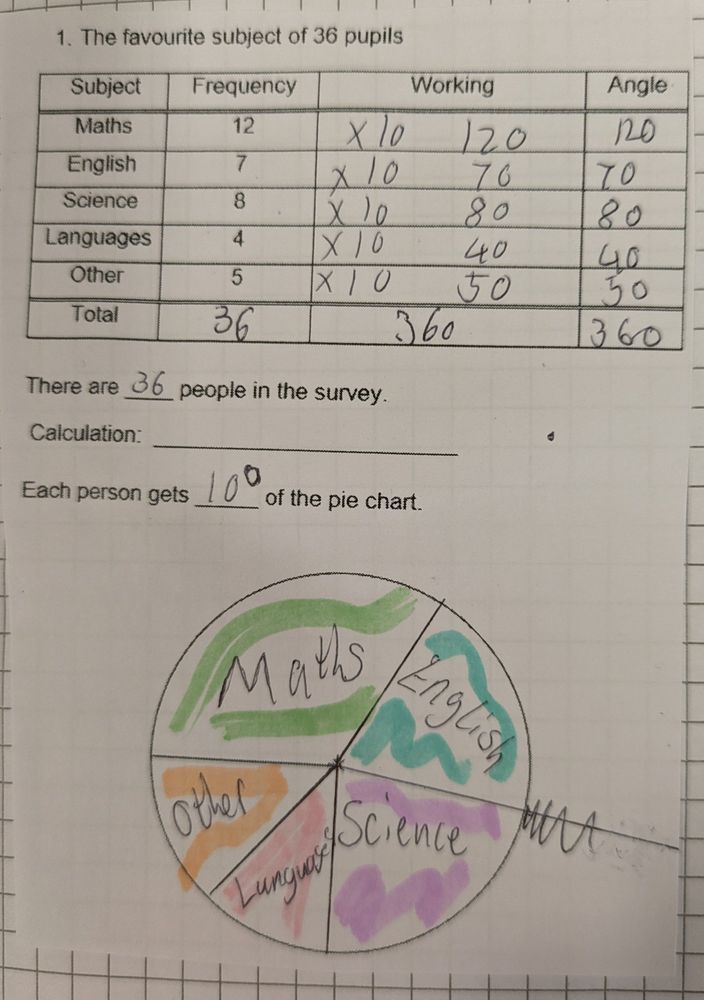 1. The favourite subject of 36 pupils
Subject Frequency Working Angle
Maths 12 X 10 120 120
English 7 X 10 70 70
Science 8 X 10 80 80
Languages 4 X 10 40 40
Other 5 X 10 50 50
Total 36 360 360
There are 36 people in the survey.
Calculation:
Each person gets 10° of the pie chart.
Maths
English
Other
Science